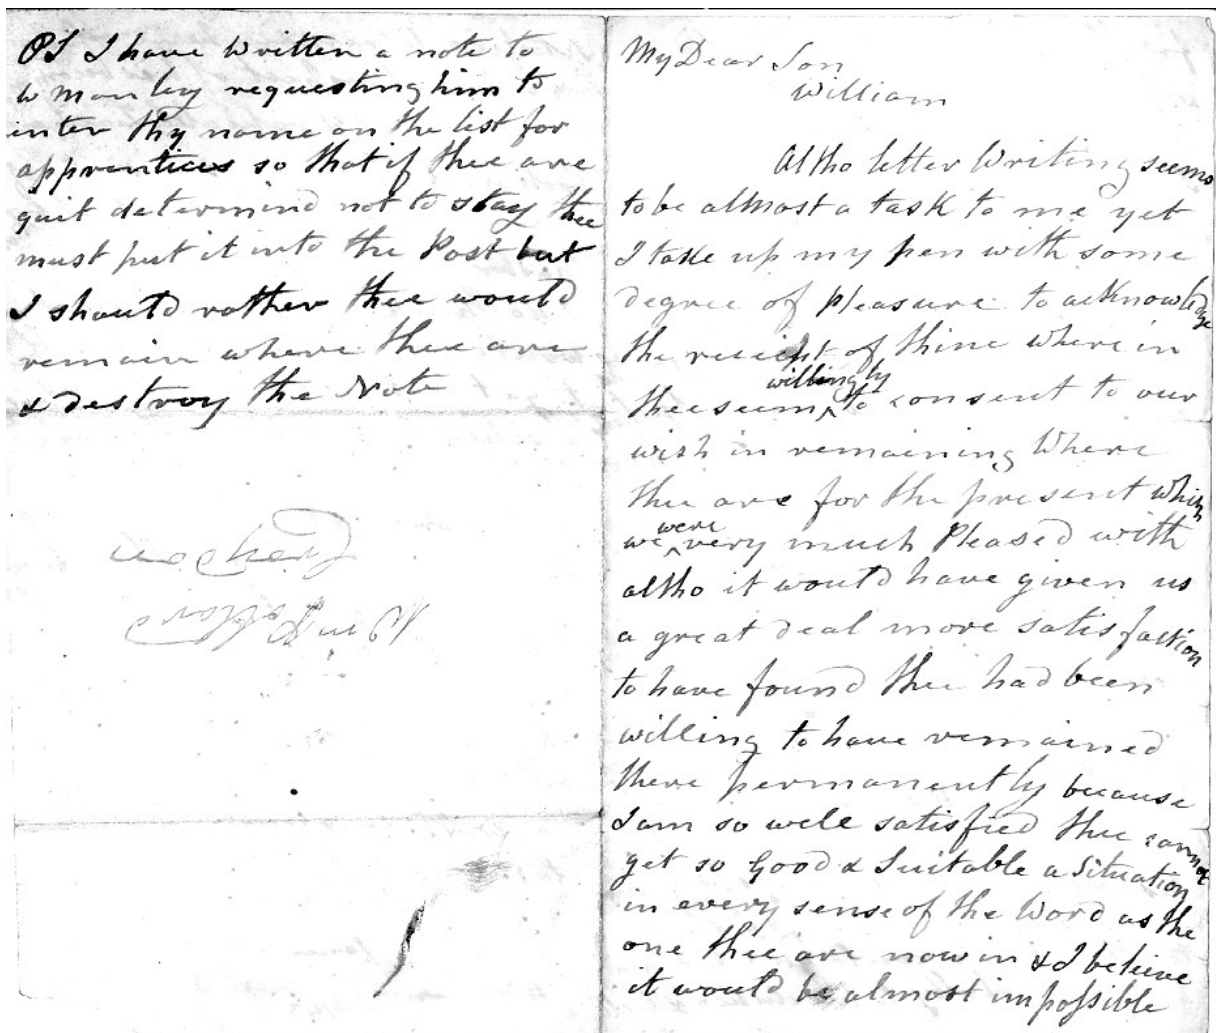 PS I have written a note to
W Manley requesting him to
enter thy name on the list for
apprentices so that if thee are
quit determind not to stay thee
must put it into the Post but
I should rather thee would
remain where thee are
& destroy the Note
Wm Pollard
My Dear Son
William
Altho letter Writing seems
to be almost a task to me yet
I take up my pen with some
degree of pleasure to acknowledge
the reciept of thine where in
thee seem willingly to consent to our
wish in remaining Where
thee are for the present which
we were very much Pleased with
altho it would have given us
a great deal more satisfaction
to have found thee had been
willing to have remained
there permanently because
I am so well satisfied thee cannot
get so Good & Suitable a Situation
in every sense of the Word as the
one thee are now in & I beleive
it would be almost impossible